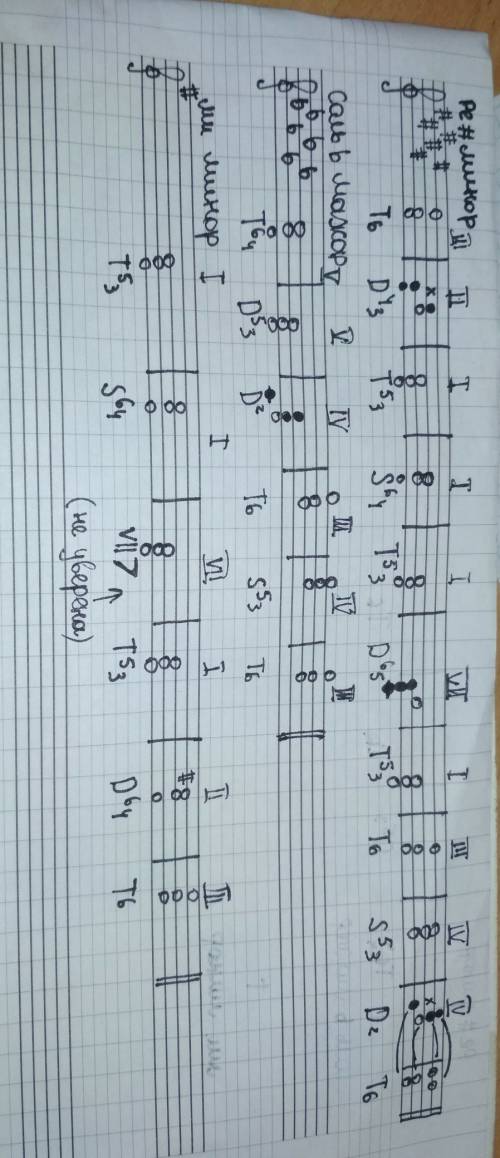 ре # минор III II I I I VII I III IV IV
T6 D43 T53 S64 T53 D65 T53 T6 S53 D2 T6
соль b мажор V V IV III IV III
T64 D53 D2 T6 S53 T6
ми минор I I VII I II III
T53 S64 VII7 T53 D64 T6
(не уверена)